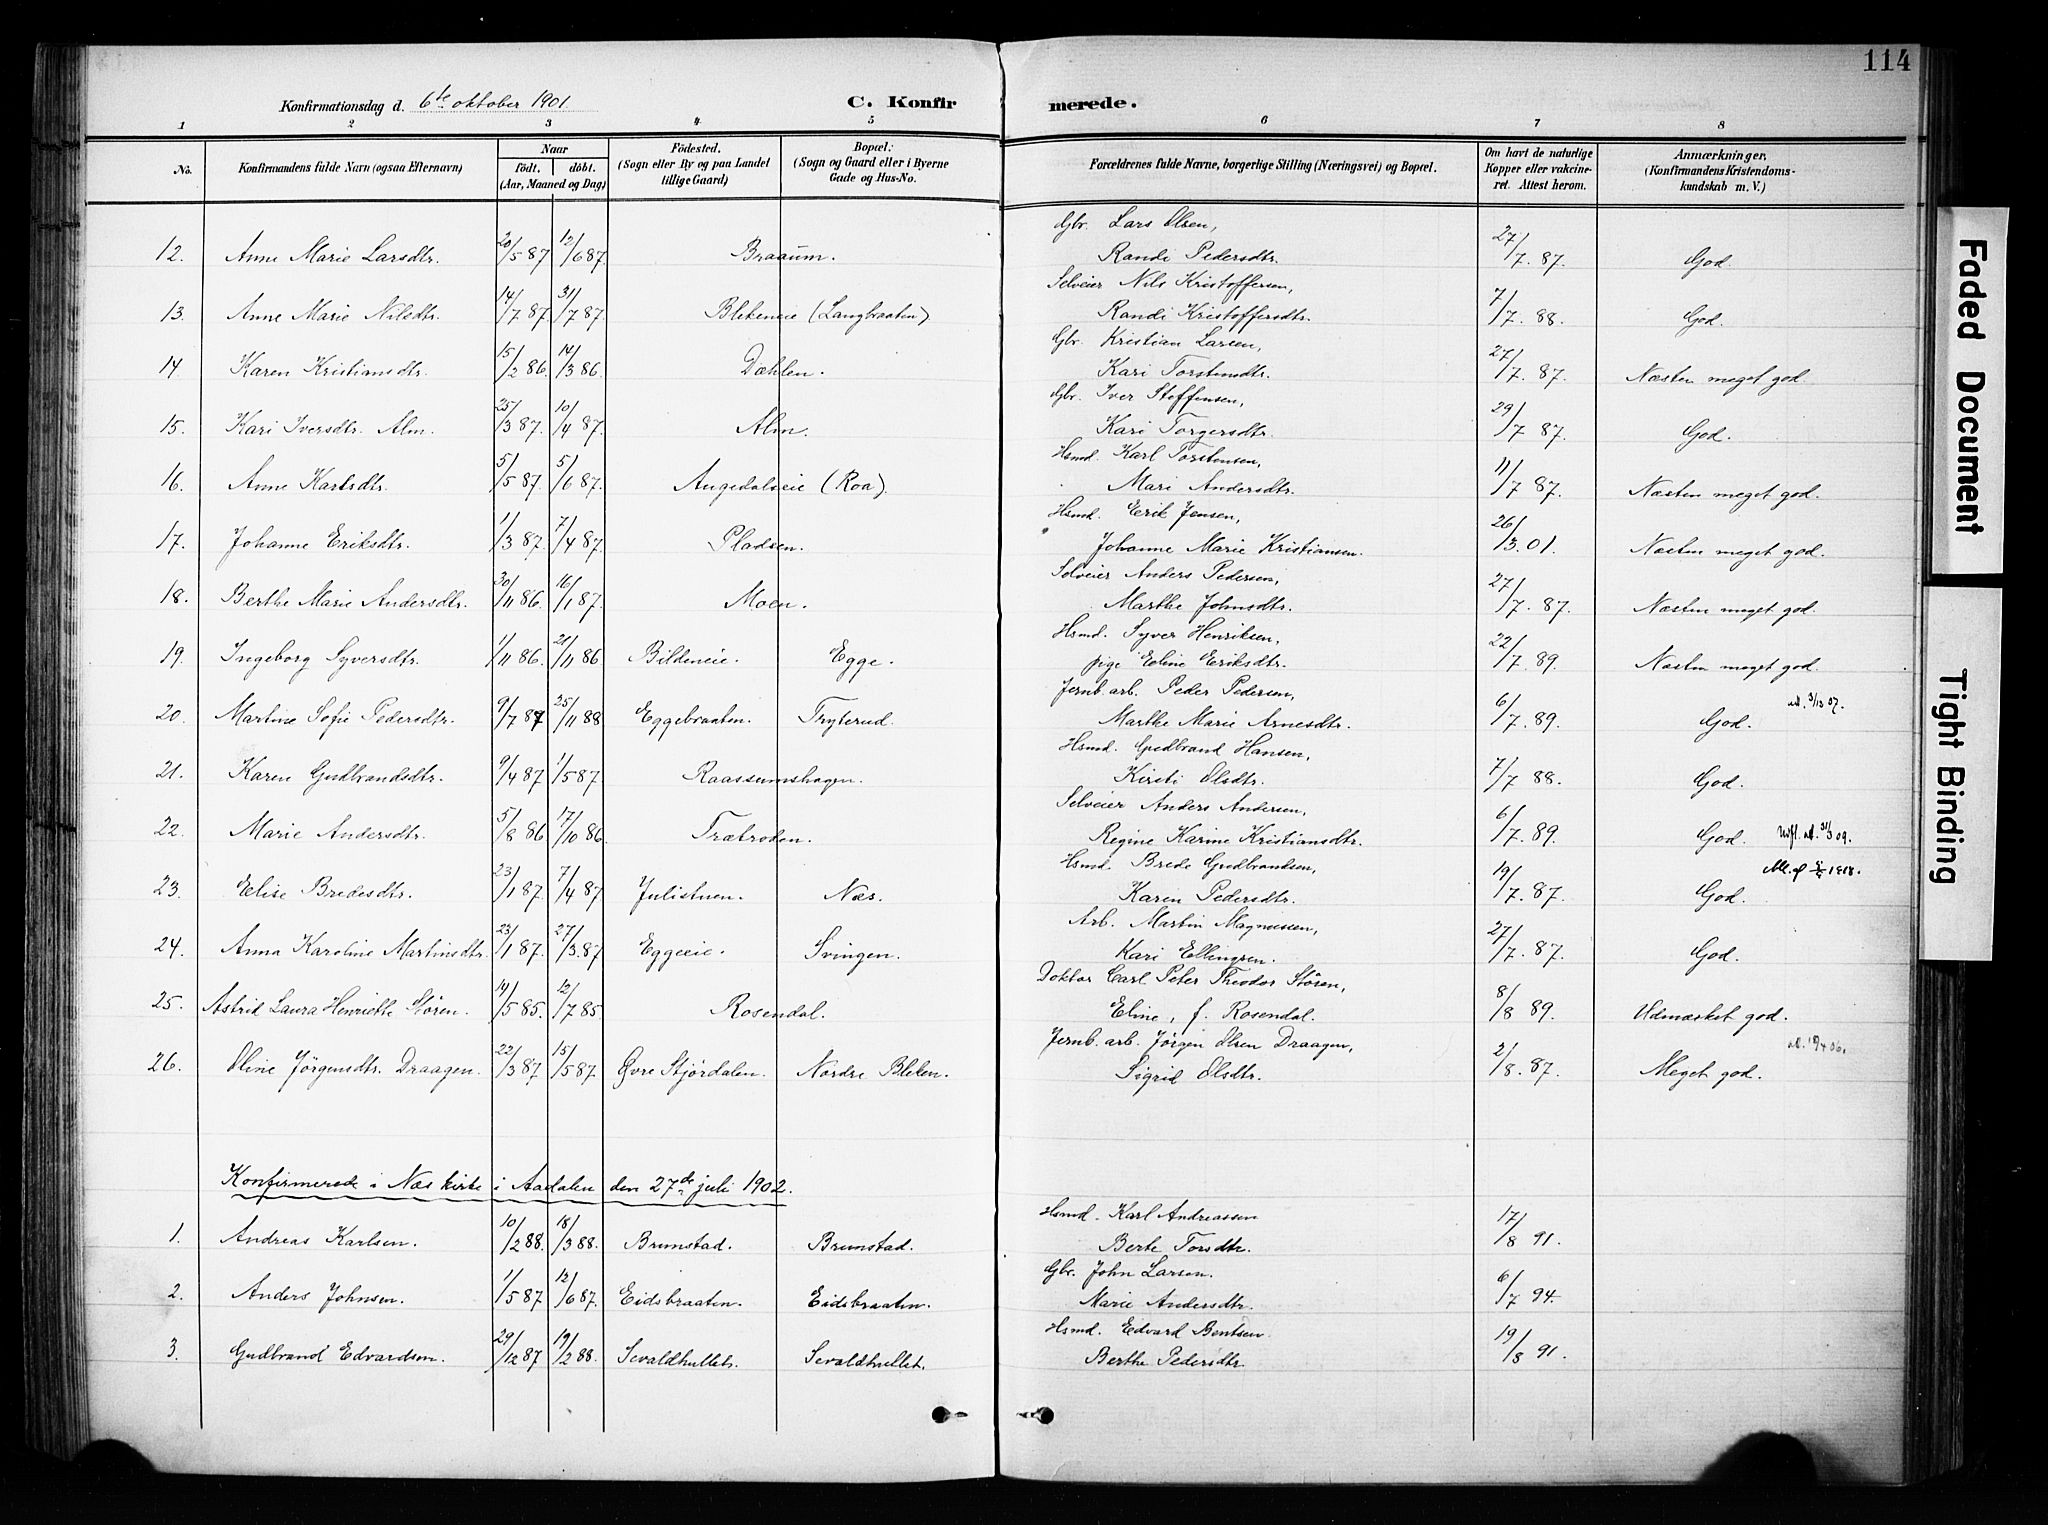 114
Konfirmationsdag d. 6te oktober 1901. C. Konfir merede.
1 2 3 4 5 6 7 8
No. Konfirmandens fulde Navn (ogsaa Efternavn) Naar født. døbt. (Aar, Maaned og Dag) Födested. (Sogn eller By og paa Landet tillige Gaard) Bopæl: (Sogn og Gaard eller i Byerne Gade og Hus-No. Forældrenes fulde Navne, borgerlige Stilling (Næringsvei) og Bopæl. Om havt de naturlige Kopper eller vakcineret. Attest herom. Anmærkninger. (Konfirmandens Kristendomskundskab m. V.)
Gbr. Lars Olsen,
12. Anne Marie Larsdtr. 20/5 87 12/6 87. Braaum. Randi Pedersdtr. 27/7. 87. God.
Selveier Nils Kristoffersen,
13. Anne Marie Nilsdtr. 14/7 87. 31/7 87. Blekeneie (Langbraaten) Randi Kristoffersdtr. 7/7. 88. God.
Gbr. Kristian Larsen,
14. Karen Kristiansdtr. 15/2 86. 14/3 86. Dæhlen. Kari Torstensdtr. 27/7. 87. Næsten meget god.
Gbr. Iver Steffensen,
15. Kari Iversdtr. Alm. 25/3 87. 10/4 87. Alm. Kari Torgersdtr. 29/7 87. God.
Hsmd. Karl Torstensen,
16. Anne Karlsdtr. 5/5 87. 5/6 87. Angedalseie (Roa). Mari Andersdtr. 11/7 87. Næsten meget god.
Hsmd. Erik Jensen,
17. Johanne Eriksdtr. 1/3 87. 7/4 87. Pladsen. Johanne Marie Kristiansen. 26/3. 01. Næsten meget god.
Selveier Anders Pedersen,
18. Berthe Marie Andersdtr. 30/11 86. 16/1 87. Moen. Marthe Johnsdtr. 27/7. 87. Næsten meget god.
Hsmd. Syver Henriksen,
19. Ingeborg Syversdtr. 1/11 86. 21/11 86 Bildeneie. Egge. pige Eline Eriksdtr. 22/7. 89. Næsten meget god.
Jernb. arb. Peder Pedersen,
20. Martine Sofie Pedersdtr. 9/7 87 25/11 88 Eggebraaten. Tryterud. Marthe Marie Arnesdtr. 6/7. 89. God.
Hsmd. Gudbrand Hansen,
21. Karen Gudbrandsdtr. 9/4 87 1/5 87. Raassumshagen. Kirsti Olsdtr. 7/7 88. God.
Selveier Anders Andersen,
22. Marie Andersdtr. 5/8 86 17/10 86. Trætroden. Regine Karine Kristiansdtr. 6/7. 89. God. Udfl. at. 31/3 09.
Hsmd. Brede Gudbrandsen,
23. Elise Bredesdtr. 23/1 87. 7/4 87 Julistuen. Næs. Karen Pedersdtr. 19/7. 87. God.
Arb. Martin Magnussen,
24. Anna Karoline Martinsdtr. 23/1 87. 27/3. 87 Eggeeie. Svingen. Kari Ellingsen. 27/7. 87. God.
Doktor Carl Peter Theodor Stören,
25. Astrid Laura Henriette Stören. 14/5 85. 12/7 85. Rosendal. Eline, f. Rosendal. 8/8 89. Udmærket god.
Jernb. arb. Jörgen Olsen Draagen,
26. Oline Jörgensdtr. Draagen. 22/3 87. 15/5 87. Øvre Stjördalen. Nordre Bleken. Sigrid Olsdtr. 2/8. 87. Meget god.
Konfirmerede i Næs kirke i Aadalen den 27de juli 1902.
Hsmd. Karl Andreassen
1. Andreas Karlsen. 10/2 88. 18/3 88. Brunstad. Brunstad. Berte Torsdtr. 17/8 91.
Gbr. John Larsen.
2. Anders Johnsen. 1/5 87 12/6 87. Eidsbraaten. Eidsbraaten. Marie Andersdtr. 6/7 94.
Hsmd. Edvard Bentsen
3. Gudbrand Edvardsen. 29/12 87 19/2 88. Sevaldhullet. Sevaldhullet. Berthe Pedersdtr 19/8 91.
Faded Document
Tight Binding